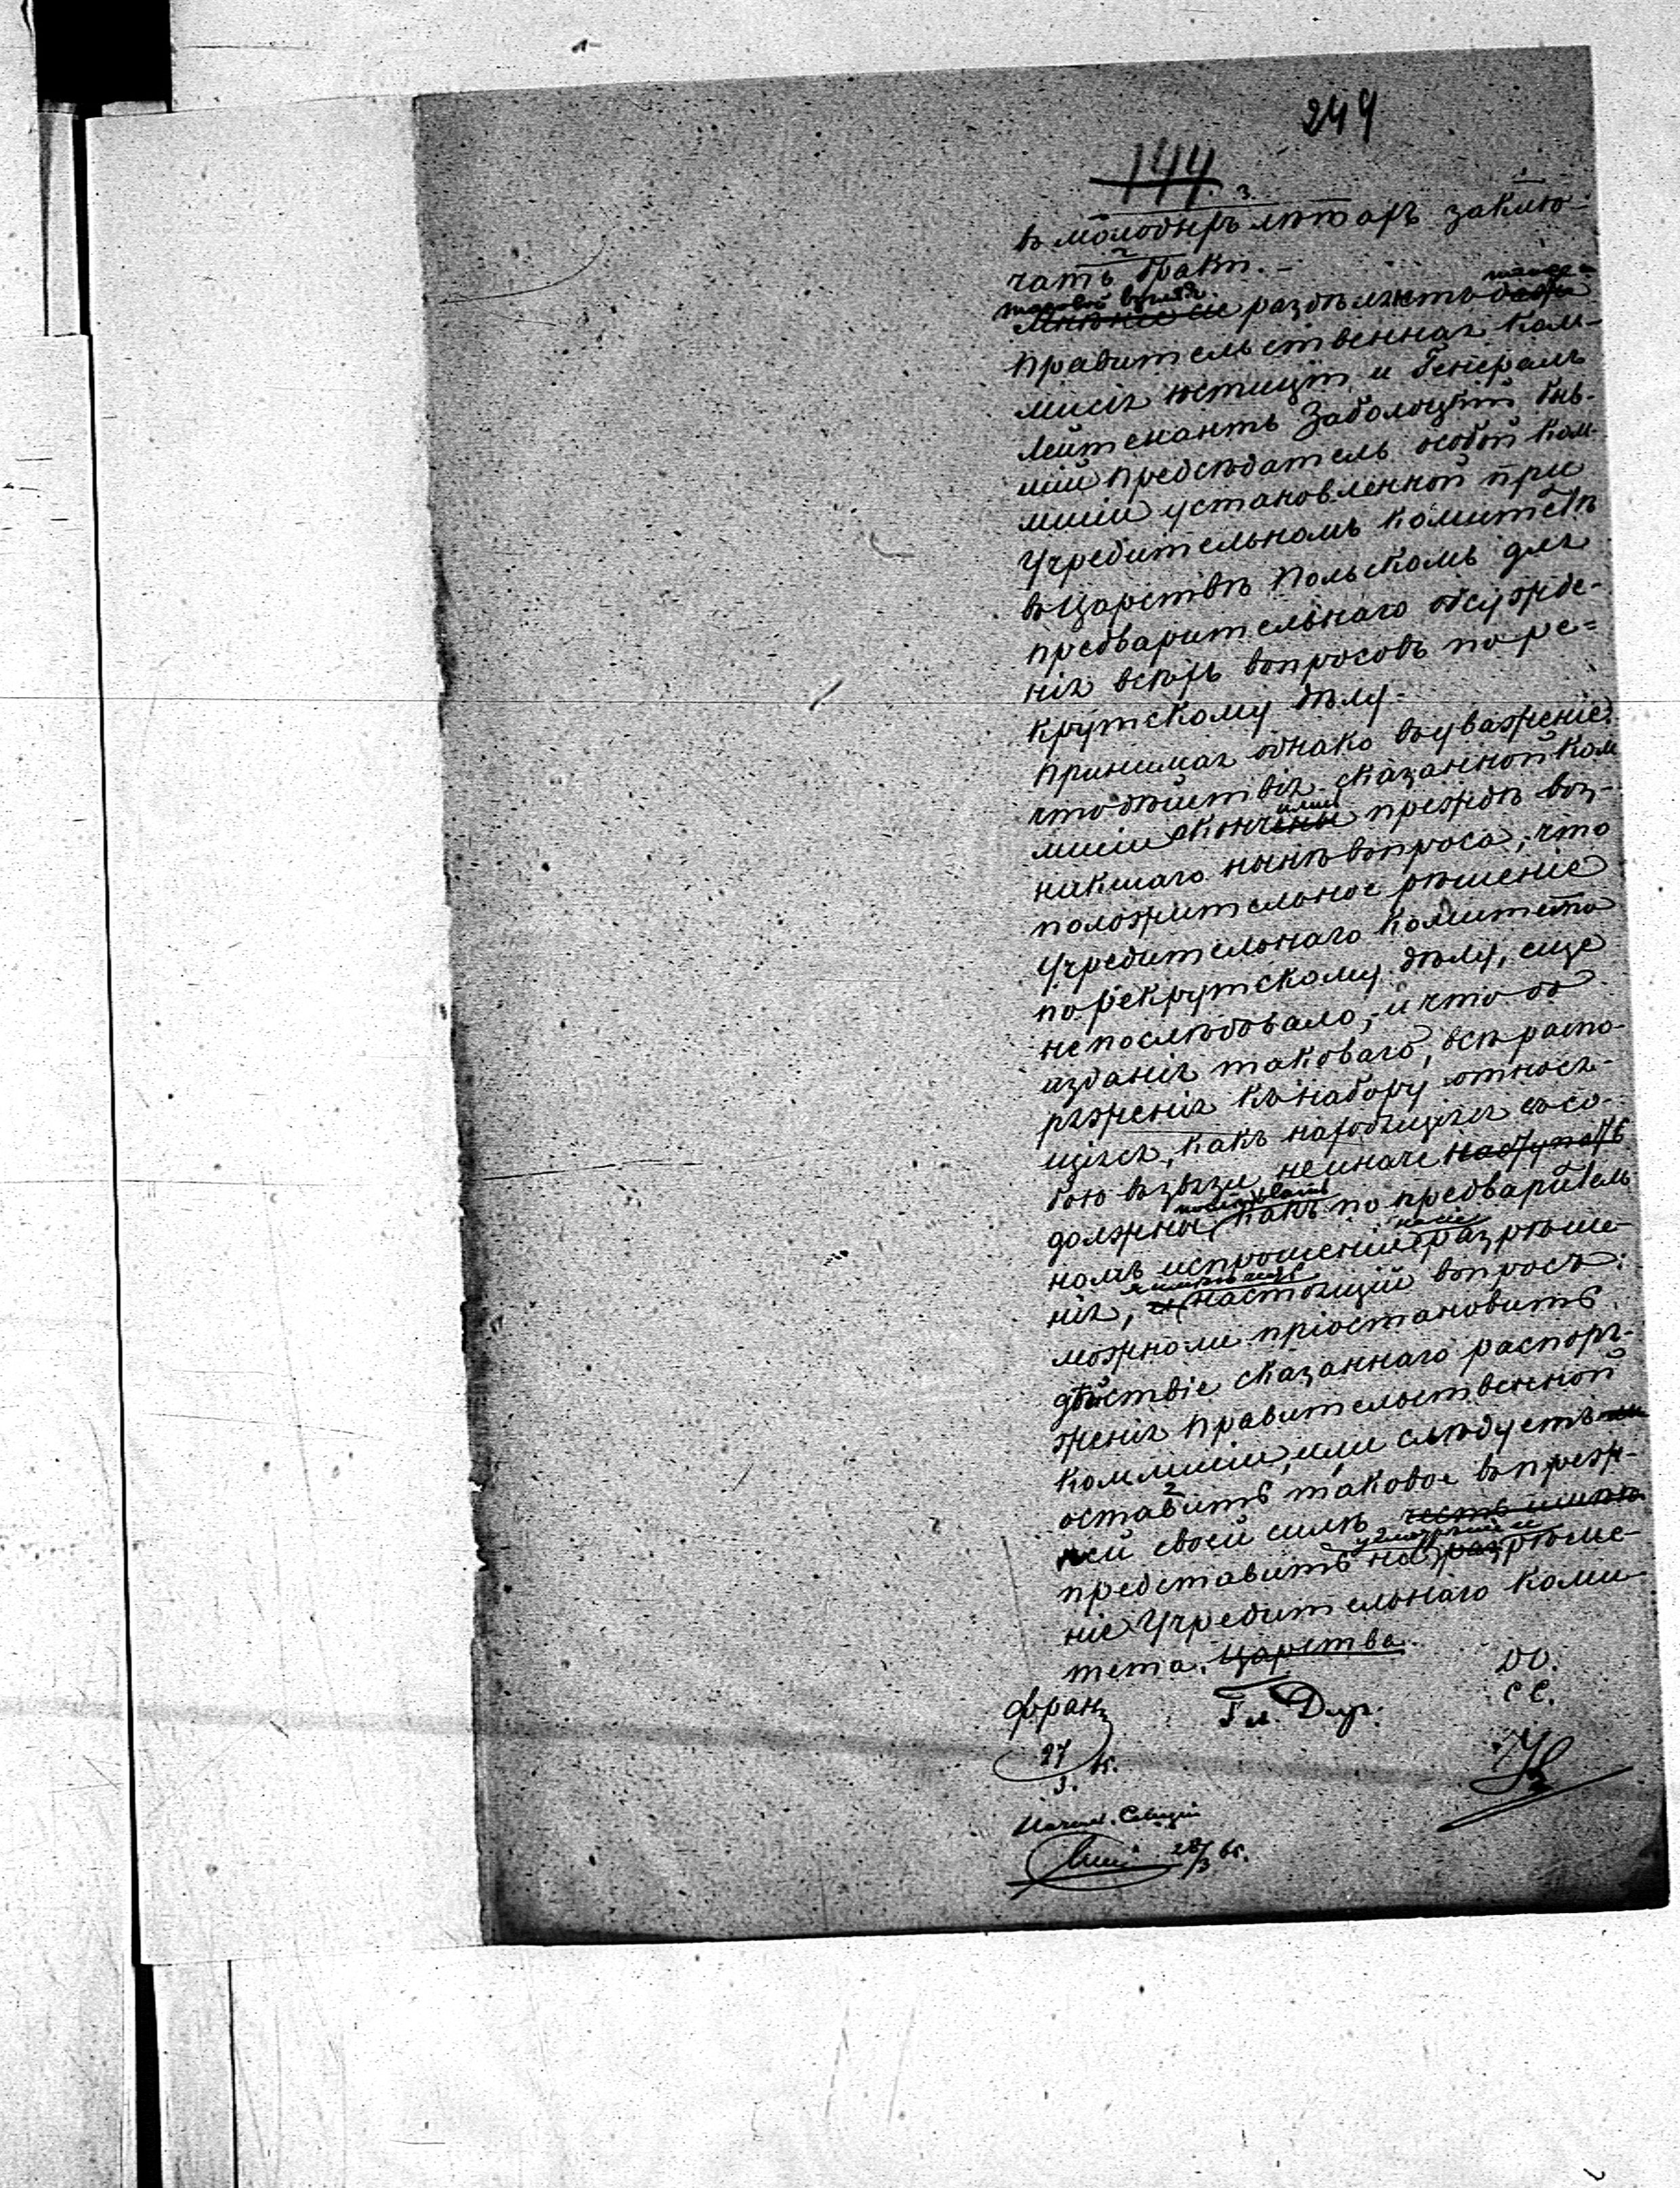 249
144
3.
въ молодыхъ лѣтахъ заклю-
чать бракъ. -
таковой взглядъ также и
Мнѣніе сіе раздѣляетъ
Правительственная Ком-
мисія Юстиціи и Генералъ
Лейтенантъ Заболоцкій быв-
шій предсѣдатель особой Ком-
мисіи установленной при
Учредительномъ Комитетѣ
въ Царствѣ Польскомъ для
предварительнаго обсужде-
нія всѣхъ вопросовъ по ре-
крутскому дѣлу.
Принимая однако въ уваженіе,
что дѣйствія сказанной Ком
мисіи окончены прежде воз-
никшаго нынѣ вопроса, что
положительное рѣшеніе
Учредительнаго Комитета
по рекрутскому дѣлу, еще
не послѣдовало, и что до
изданія таковаго, всѣ распо-
ряженія къ набору относя-
щіяся, какъ находящіяся въ со-
бою въ связи, не иначе наступать
должны, какъ по предваритель
номъ испрошеніи разрѣше-
нія, настоящій вопросъ:
можно ли пріостановить
дѣйствіе сказаннаго распоря-
женія Правительственной
Коммисіи, или слѣдуетъ ли
оставить таковое въ преж-
ней своей силѣ, честь имѣю
представить на разрѣше-
ніе Учредительнаго Коми-
тета. Царства.
Гл. Дир.
ДО.
СС.
Франц
27
3. 65.
Начал. Секціи
28/3 65.